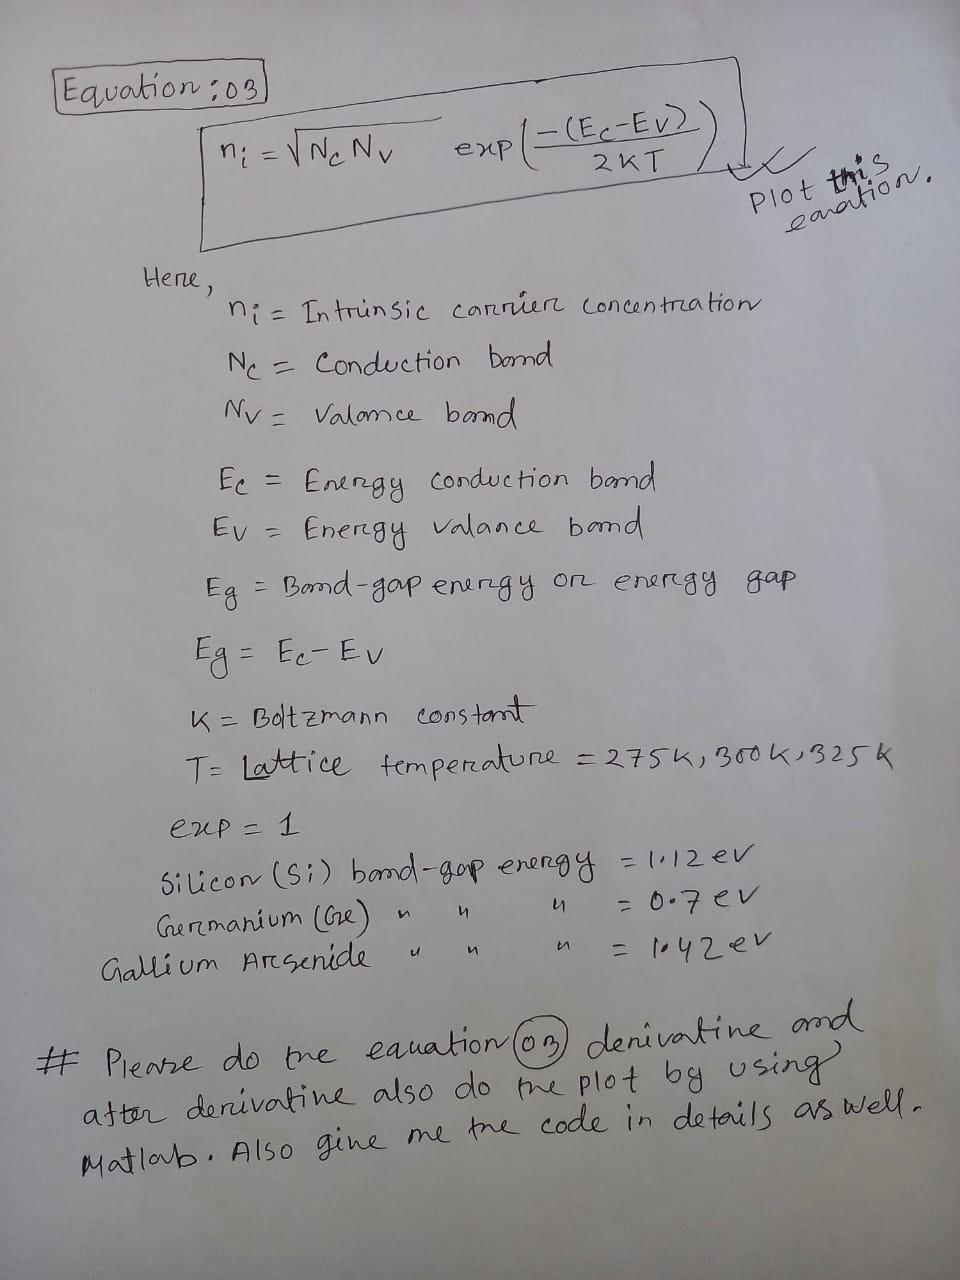 Equation: 03
ni = √Nc Nv exp(-(Ec-Ev)/2KT)
Plot this
equation.
Here,
ni = Intrinsic carrier concentration
Nc = Conduction band
Nv = Valance band
Ec = Energy conduction band
Ev = Energy valance band
Eg = Band-gap energy or energy gap
Eg = Ec-Ev
K = Boltzmann constant
T= Lattice temperature = 275K, 300K, 325K
exp = 1
Silicon (Si) band-gap energy = 1.12 ev
Germanium (Ge) " " " = 0.7 ev
Gallium Arsenide " " " = 1.42 ev
# Please do the equation 03 derivative and
after derivative also do the plot by using
Matlab. Also give me the code in details as well.